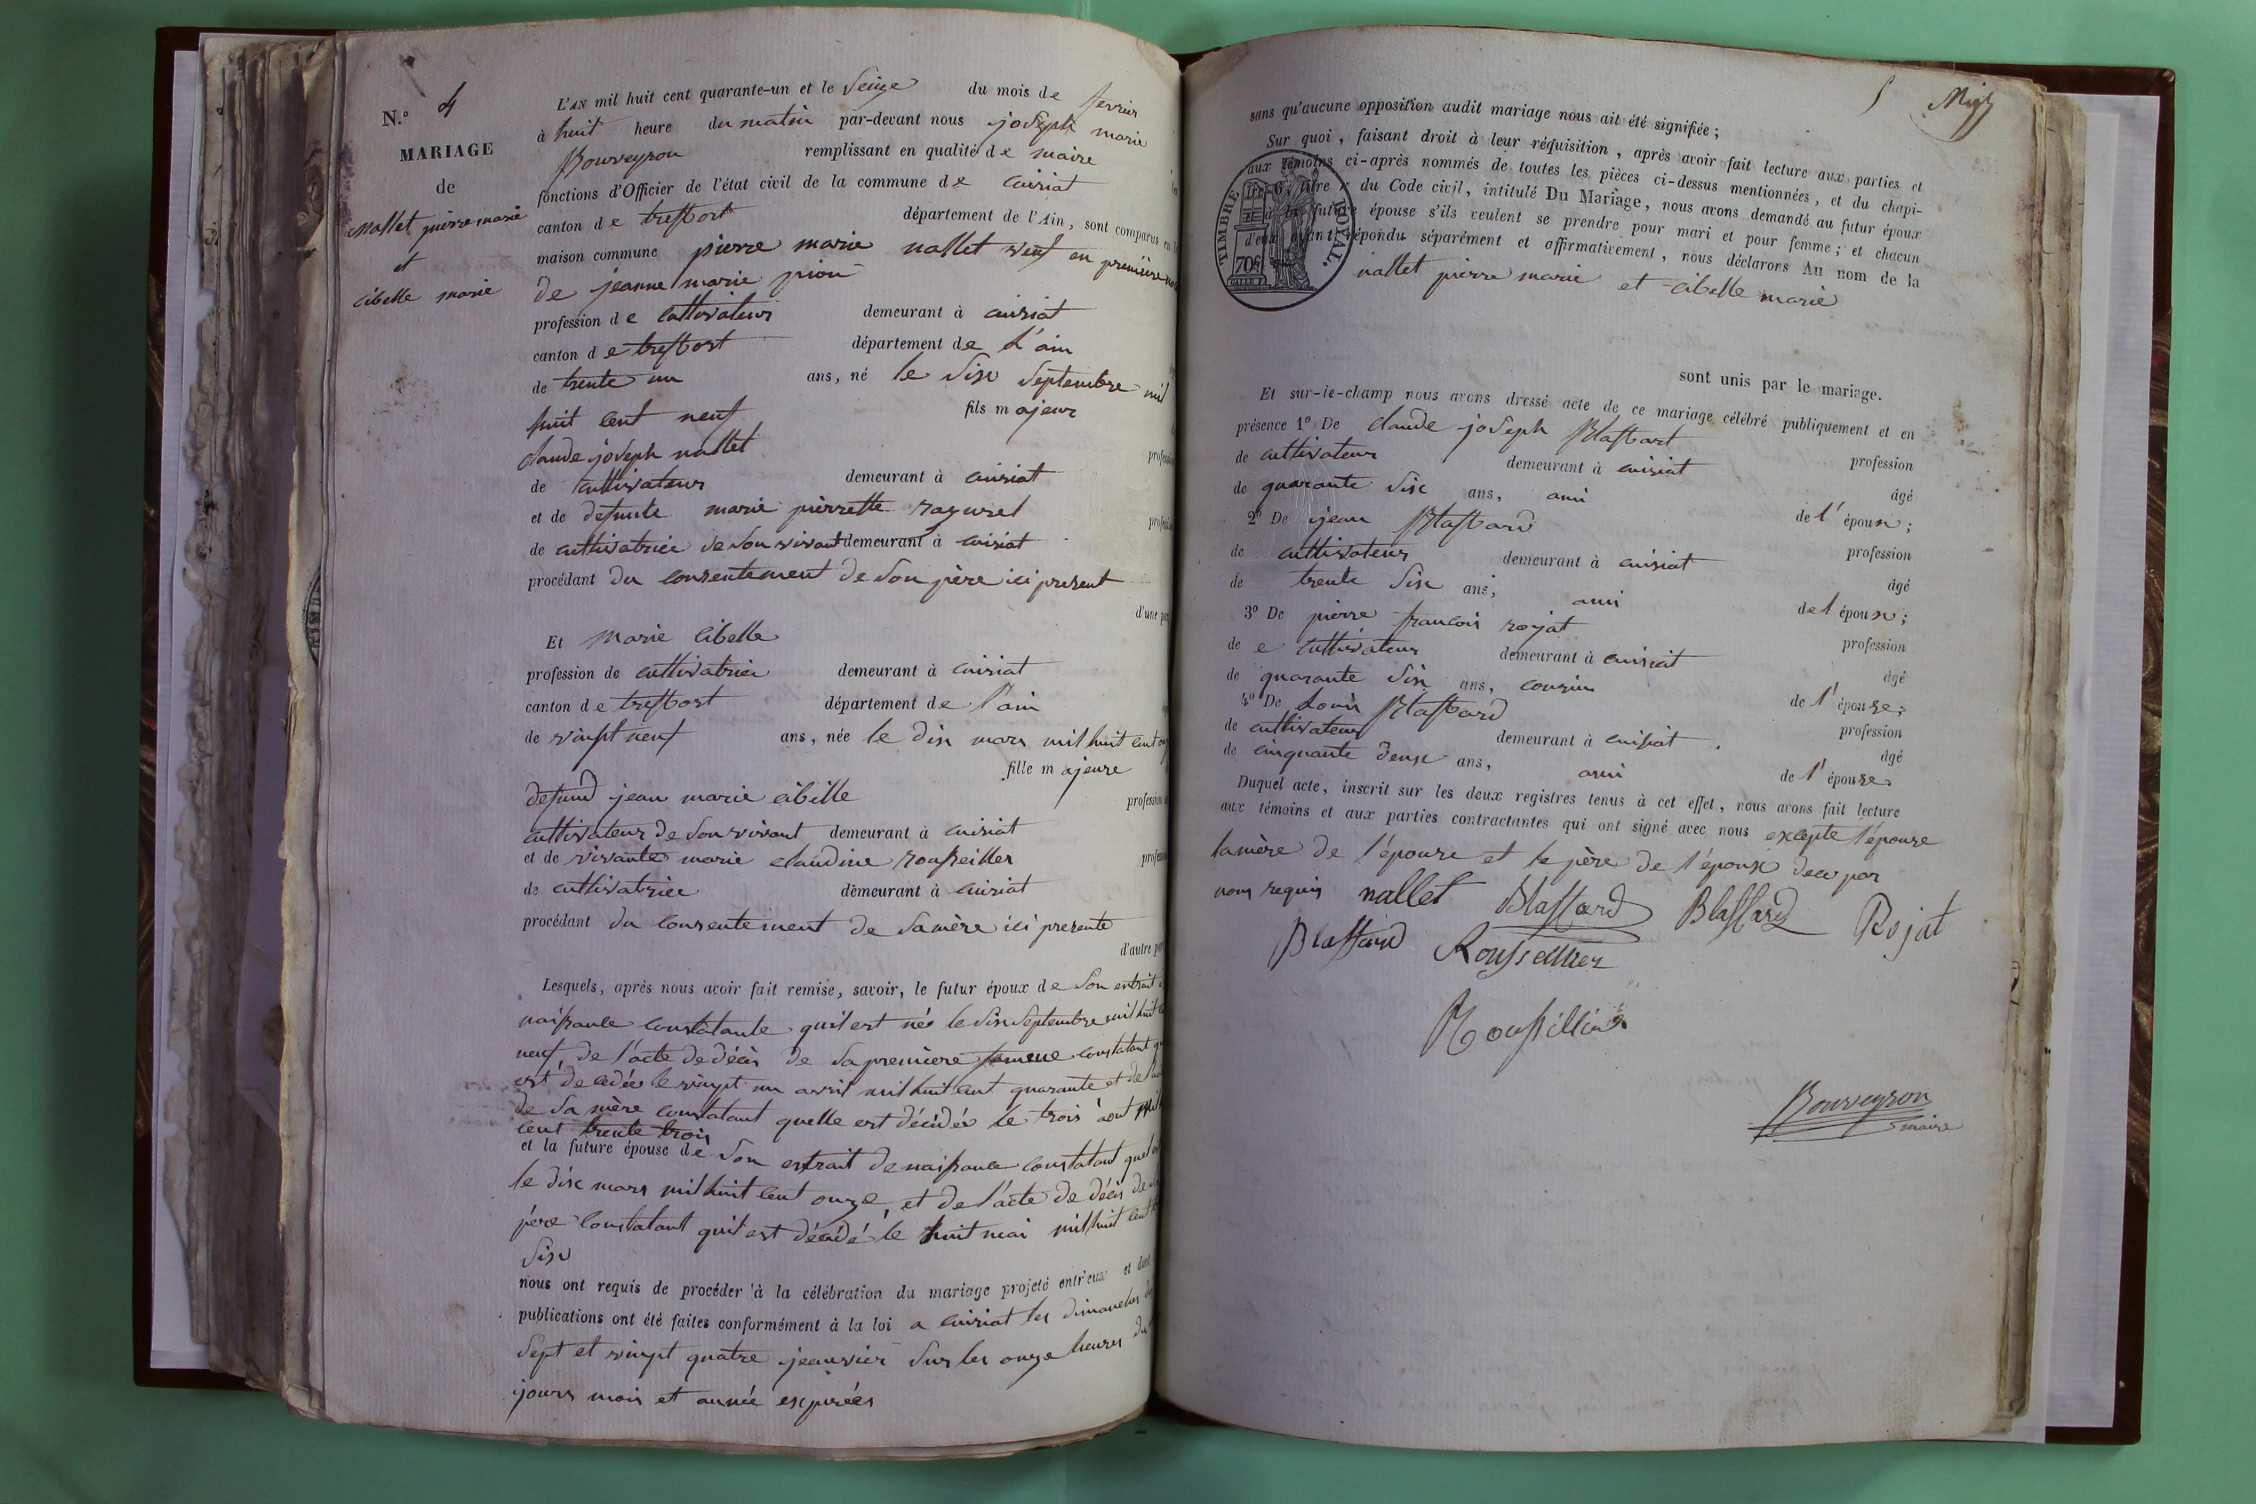 N.° 4
MARIAGE
de
Nallet pierre marie
et
Cibelle marie
L'AN mil huit cent quarante-un et le Seize du mois de fevrier
à huit heure du matin par-devant nous joseph marie
Bouveyron remplissant en qualité de maire
fonctions d'Officier de l'état civil de la commune de cuisiat
canton de treffort département de l'Ain, sont comparus en
maison commune pierre marie nallet veuf en première
de jeanne marie
profession de cultivateur demeurant à cuisiat
canton de treffort département de L'ain
de trente un ans, né le six septembre mil
huit cent neuf fils majeur
claude joseph nallet
de cultivateur demeurant à cuisiat
et de defunte marie pierrette
de cultivatrice de son vivant demeurant à cuisiat
procédant du consentement de son père ici present
d'une
Et Marie Cibelle
profession de cultivatrice demeurant à cuisiat
canton de treffort département de l'ain
de vingt neuf ans, née le dix mars mil huit cent
fille majeure
defund jean marie cibelle profession
cultivateur de son vivant demeurant à cuisiat
et de vivante marie claudine
de cultivatrice demeurant à cuisiat
procédant du consentement de sa mère ici presente
d'autre
Lesquels, après nous avoir fait remise, savoir, le futur époux de son extrait
naissance constatante qu'il est né le six septembre mil huit
neuf, de l'acte de décès de sa première femme constatant
est décédée le vingt un avril mil huit cent quarante et de
de sa mère constatant quelle est décédée le trois aout
cent trente trois
et la future épouse de son extrait de naissance constatant
le dix mars mil huit cent onze, et de l'acte de décès de
père constatant qu'il est décédé le huit mai mil huit cent
six
nous ont requis de procéder à la célébration du mariage projeté entr'eux et dont
publications ont été faites conformément à la loi a cuisiat les dimanches
sept et vingt quatre janvier sur les onze heures du
jours mois et année
5
sans qu'aucune opposition audit mariage nous ait été signifiée;
Sur quoi, faisant droit à leur réquisition, après avoir fait lecture aux parties et
aux témoins ci-après nommés de toutes les pièces ci-dessus mentionnées, et du chapi-
tre 6, titre v du Code civil, intitulé Du Mariage, nous avons demandé au futur époux
et à la future épouse s'ils veulent se prendre pour mari et pour femme; et chacun
d'eux ayant répondu séparément et affirmativement, nous déclarons Au nom de la
TIMBRE ROYAL.
70c
nallet pierre marie et cibelle marie
sont unis par le mariage.
Et sur-le-champ nous avons dressé acte de ce mariage célébré publiquement et en
présence 1° De claude joseph Blaffart profession
de cultivateur demeurant à cuisiat âgé
de quarante six ans, ami de l'époux;
2° De jean Blaffard profession
de cultivateur demeurant à cuisiat âgé
de trente six ans, ami de l époux;
3° De pierre francois rojat profession
de e cultivateur demeurant à cuisiat âgé
de quarante six ans, cousin de l'épouse;
4° De Louis Blaffard profession
de cultivateur demeurant à cuisiat. âgé
de cinquante deux ans, ami de l'épouse.
Duquel acte, inscrit sur les deux registres tenus à cet effet, nous avons fait lecture
aux témoins et aux parties contractantes qui ont signé avec nous excepte l'épouse
la mère de l'épouse et le père de l'époux de ce par
nous requis nallet Blaffard Blaffard Rojat
Blaffard
Bouveyron
maire